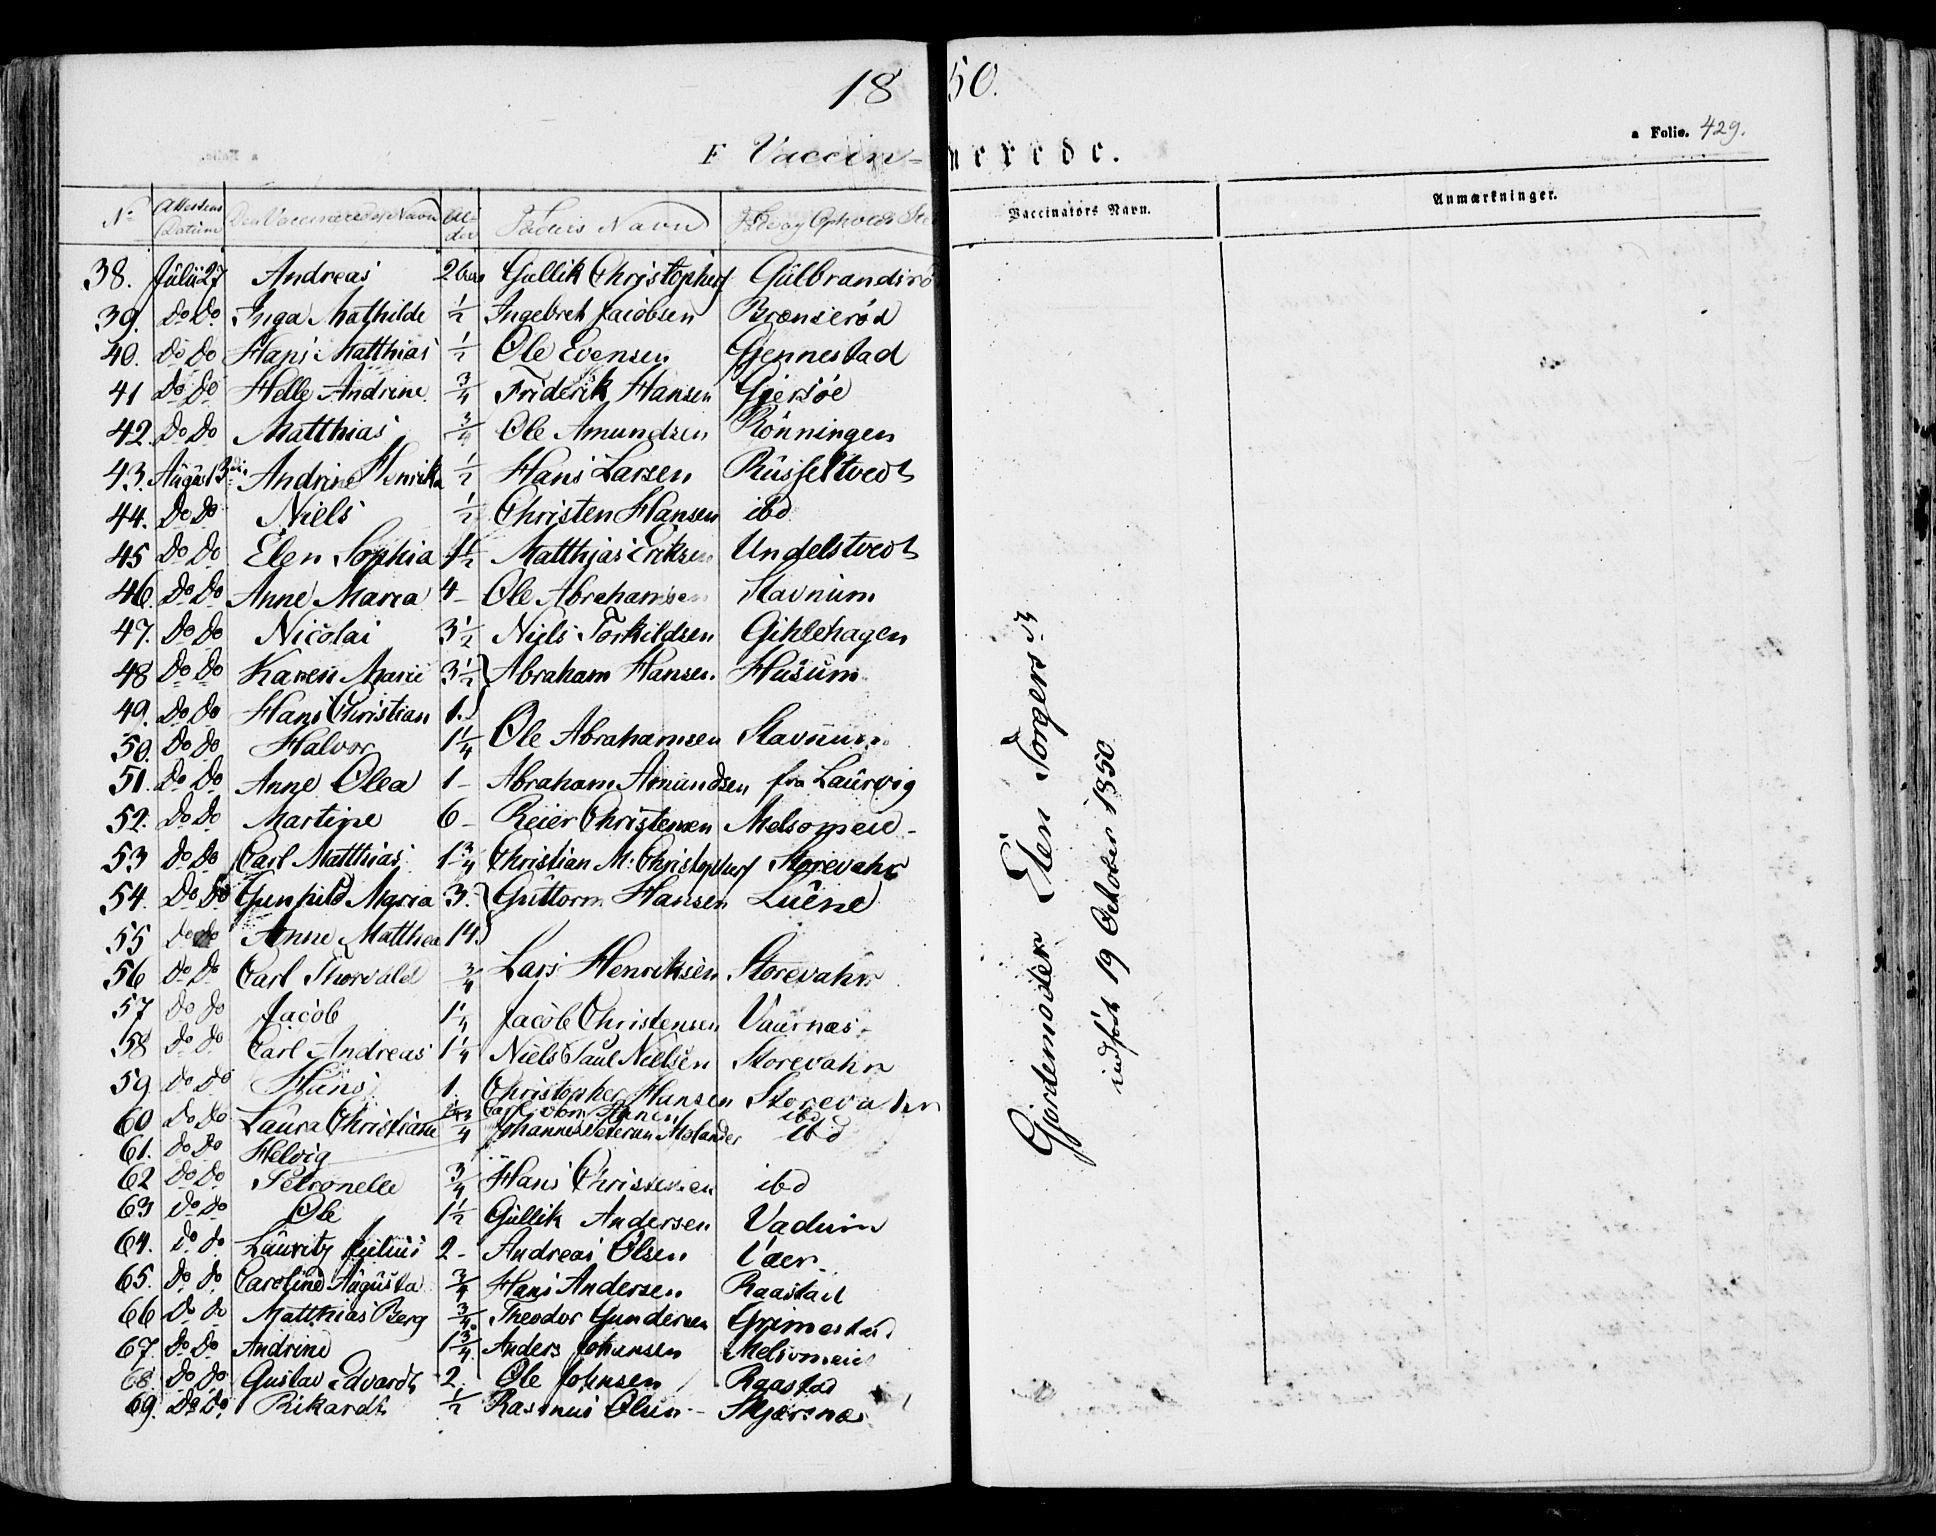 1850.
a Folio. 429.
F Vaccinerede.
No Attestens Datum Den Vaccineredes Navn Alder Faders Navn Føde og Opholds Sted Vaccinators Navn. Anmærkninger.
38. Julii 27 Andreas 2 Gullik Christophers Gülbrandsrö
39. Do Do Inga Mathilde 1/2 Ingebret Jacobsen Brænserød
40. Do Do Hans Matthias 1/2 Ole Evensen Gjennestad
41 Do Do Helle Andrine 3/4 Friderik Hansen Gjersöe
42. Do Do Matthias 3/4 Ole Amundsen Rönningen
43. August 3die Andrine Henrika 1/2 Hans Larsen Rüsseltvedt
44. Do Do Niels 1/2 Christen Hansen ibd
45 Do Do Elen Sophia 1 1/2 Matthias Eriksen Undelstvedt
46. Do Do Anne Maria 4 - Ole Abrahamsen Stavnüm
47. Do Do Nicolai 3 1/2 Niels Torkildsen Gihlehagen
48 Do Do Karen Marie 3 1/2 } Abraham Hansen. Husum
49. Do Do Hans Christian 1. }
50. Do Do Halvor 1 1/4 Ole Abrahamsen Stavnum
51. Do Do Anne Olea 1 - Abraham Amundsen fra Laurvig
52. Do Do Martine 6 - Reier Christensen Melsomeid -
53 Do Do Carl Matthias 1 3/4 Christian M: Christophers Storevahr
54. Do Do Gunhild Maria 3. } Guttorm Hansen Luene
55 Do Do Anne Matthea 14. }
56 Do Do Carl Thorvald 3/4 Lars Henriksen Storevahr
57 Do Do Jacob 1 1/4 Jacob Christensen Vaarnæs -
58 Do Do Carl Andreas 1 1/4 Niels Paul Nielsen Storevahr
59 Do Do Hans 1 Christopher Hansen Storevahr
60 Do Do Laura Christiane 3/4 ibd
61. Do Do Helvig Johannes Molander ibd
62 Do Do Petronelle 3/4 Hans Christensen ibd
63 Do Do Ole 1 1/2 Gullik Andersen Vadum
64. Do Do Lauritz Julius 2 - Andreas Olsen Vaer
65. Do Do Caroline Augusta 3/4 Hans Andersen Raastad
66 Do Do Matthias Berg 3/4 Theodor Gundersen Grimestad
67. Do Do Andrine 1 3/4 Anders Johansen Melsomeid
68 Do Do Gustav Edvardt 2. Ole Johnsen Raastad
69. Do Do Rikardt 1/2 Rasmus Olsen - Skjærsnæs
Gjordemoder Elen Torgersdr
indført 19 October 1850